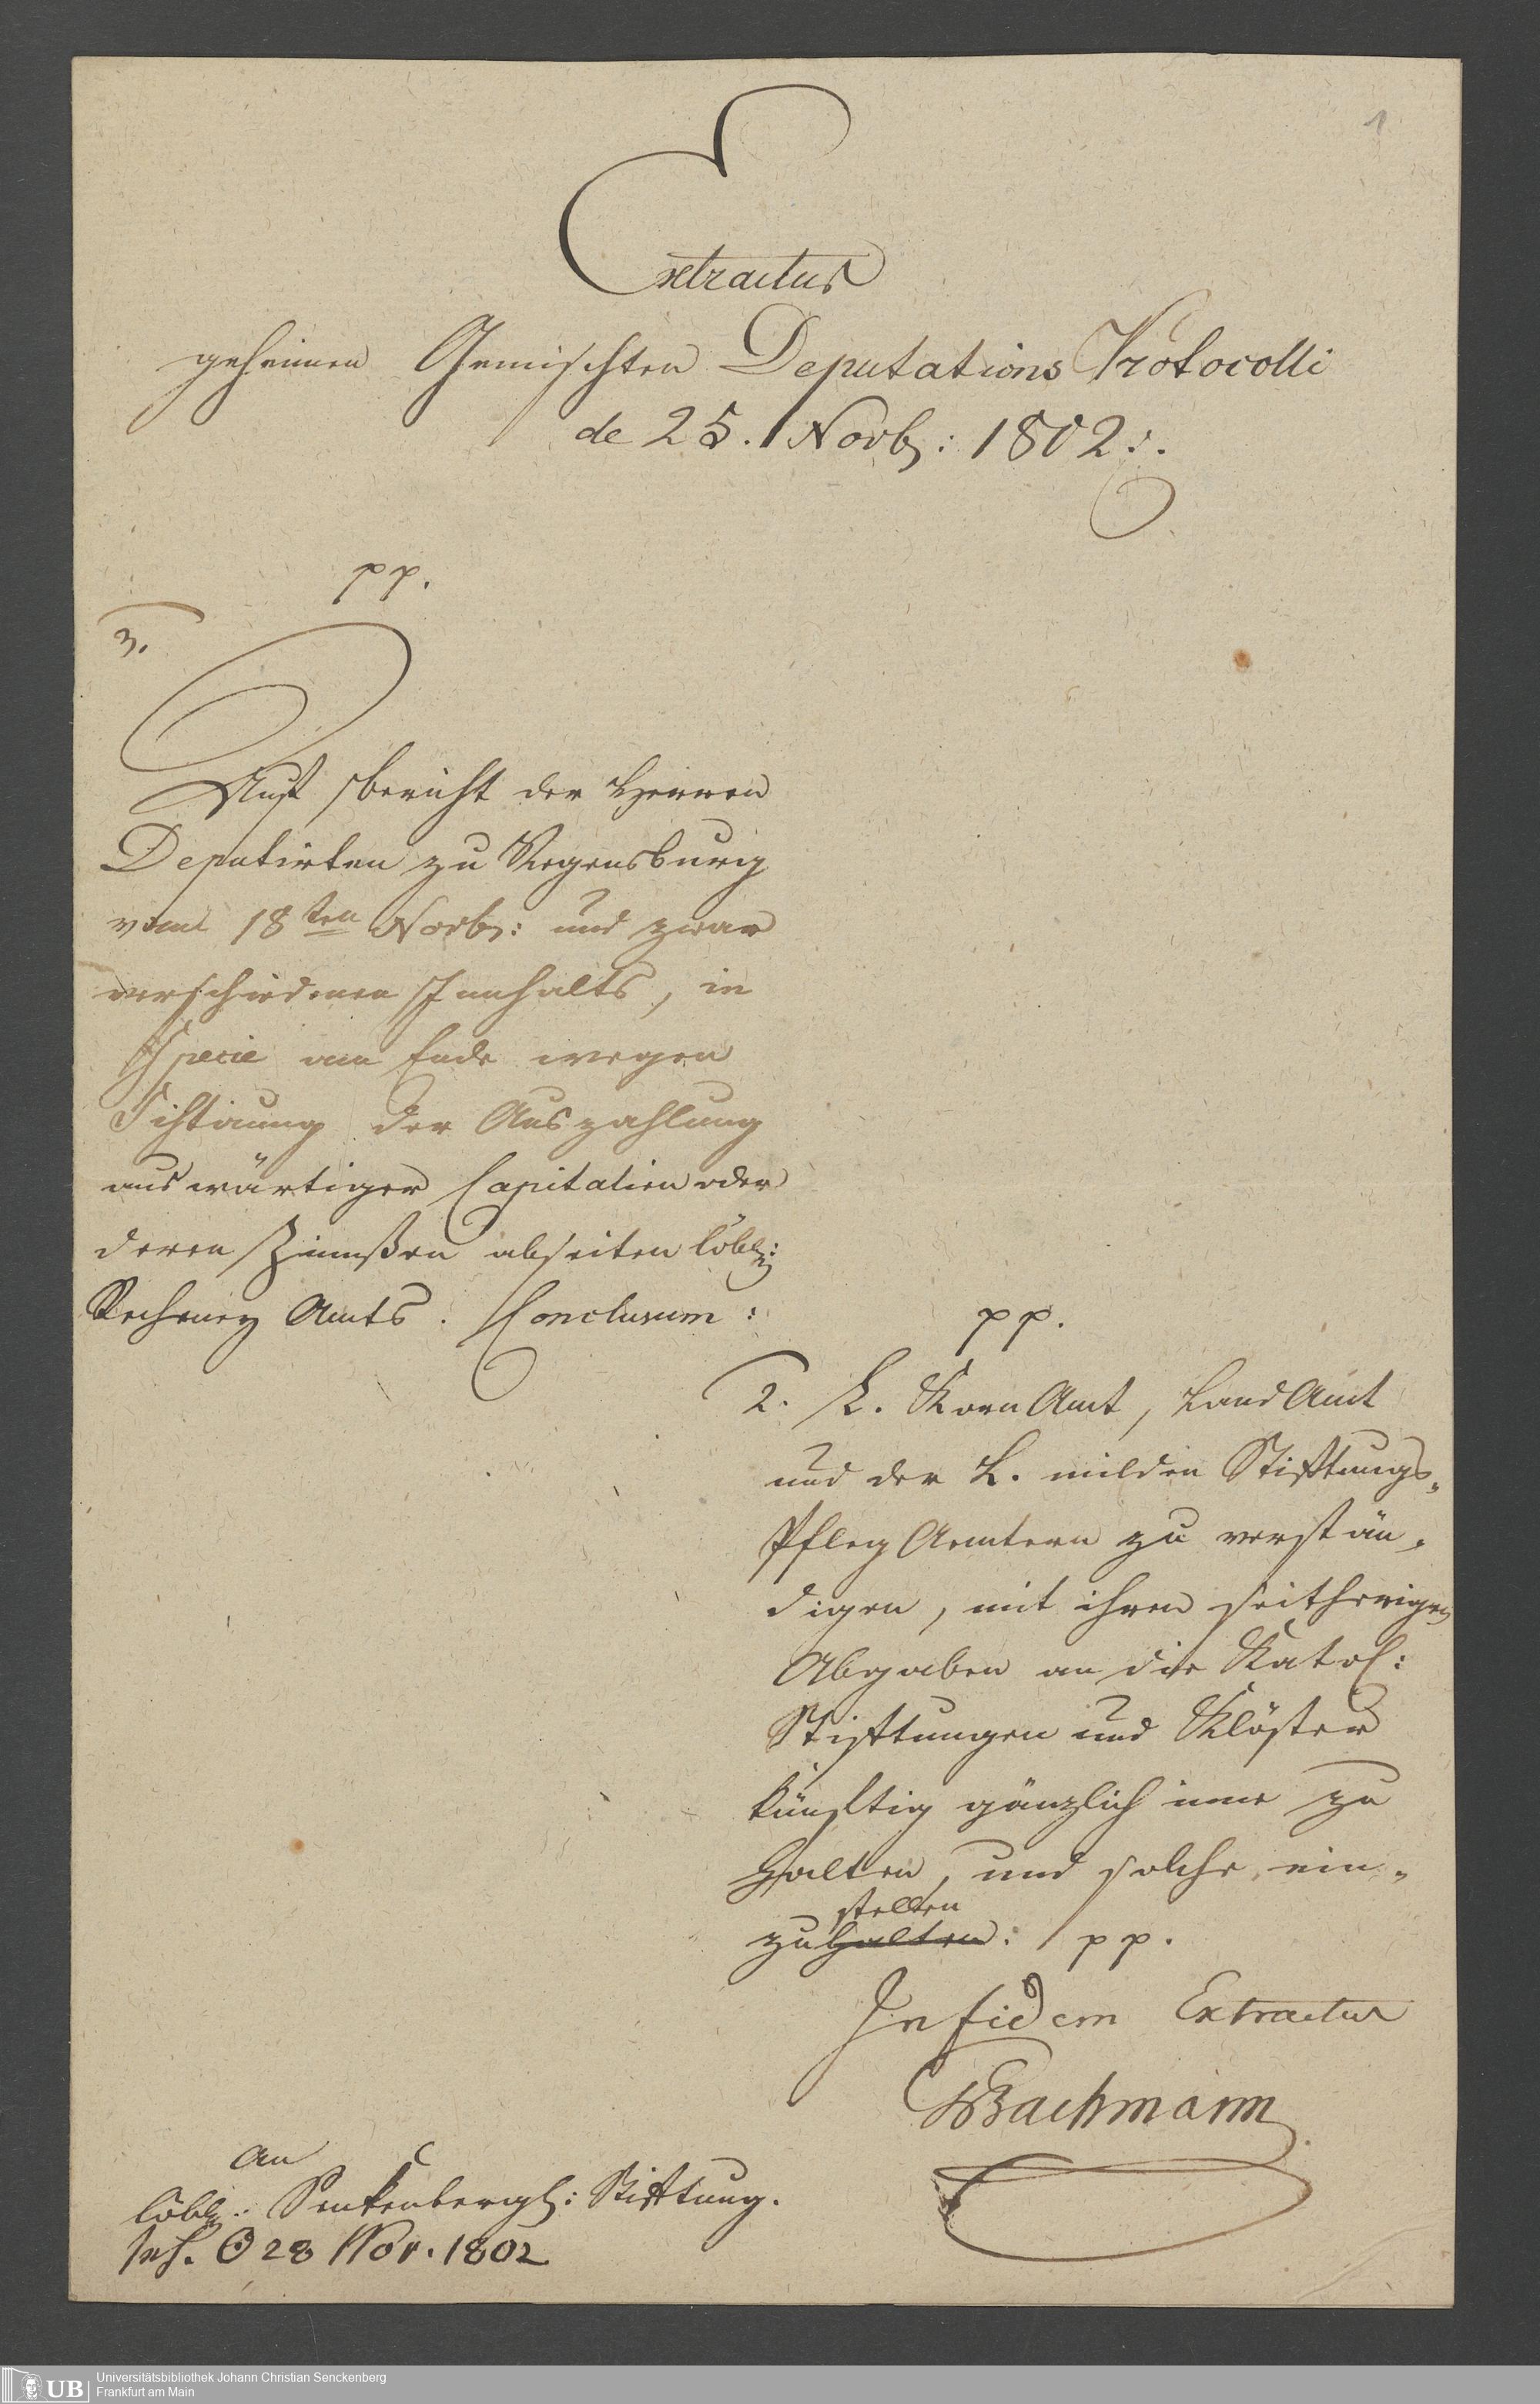 1
Extractus
geheimen Gemischten Deputations Protocolli
de 25. Novbr: 1802.
pp.
3.
Auf Bericht der Herren
Deputirten zu Regensburg
vom 18ten Novbr: und zwar
verschiedenen Innhalts, in
Specie am Ende wegen
Sistirung der Auszahlung
auswärtiger Capitalien oder
deren Zinnßen abseiten löbl:
Rechney Amts. Conclusum:
pp.
2. L. Korn Amt, Land Amt
und der L. milden Stifftungs-
Pfleg Aemtern zu verstän-
digen, mit ihren seitherigen
Abgaben an die Katol:
Stifftungen und Klöster
künftig gänzlich inne zu
halten, und solche ein-
stellen
zuhalten: pp.
In fidem Extractus
Bachmann
An
löbl: Senkenbergl: Stifftung.
☉ 28 Nov. 1802
UB
Universitätsbibliothek Johann Christian Senckenberg
Frankfurt am Main